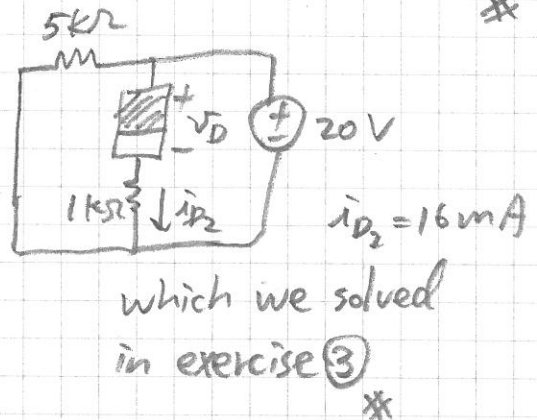 5kΩ
+
v_D
-
+
-
20 V
1kΩ ↓ i_D₂
i_D₂ = 16 mA
which we solved
in exercise ③